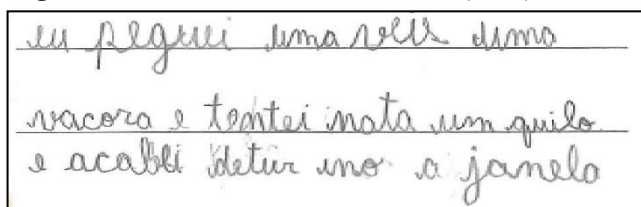 eu peguei uma veis uma
vacora e tentei mata um quilo
e acabei detur ino a janela